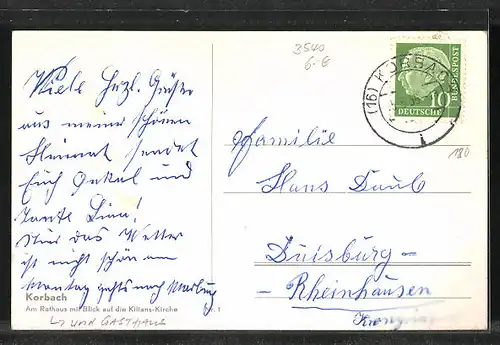 Viele herzl. Grüße
aus meiner schönen
Heimat sendet
Euch Onkel und
Tante Lina!
Nur das Wetter
ist nicht schön am
Montag gehts nach Marburg
Korbach
Am Rathaus mit Blick auf die Kilians-Kirche
UND GASTHAUS
3540
6.-€
(16) KORBACH
10
DEUTSCHE
BUNDESPOST
180
Familie
Hans Daub
Duisburg-
Rheinhausen